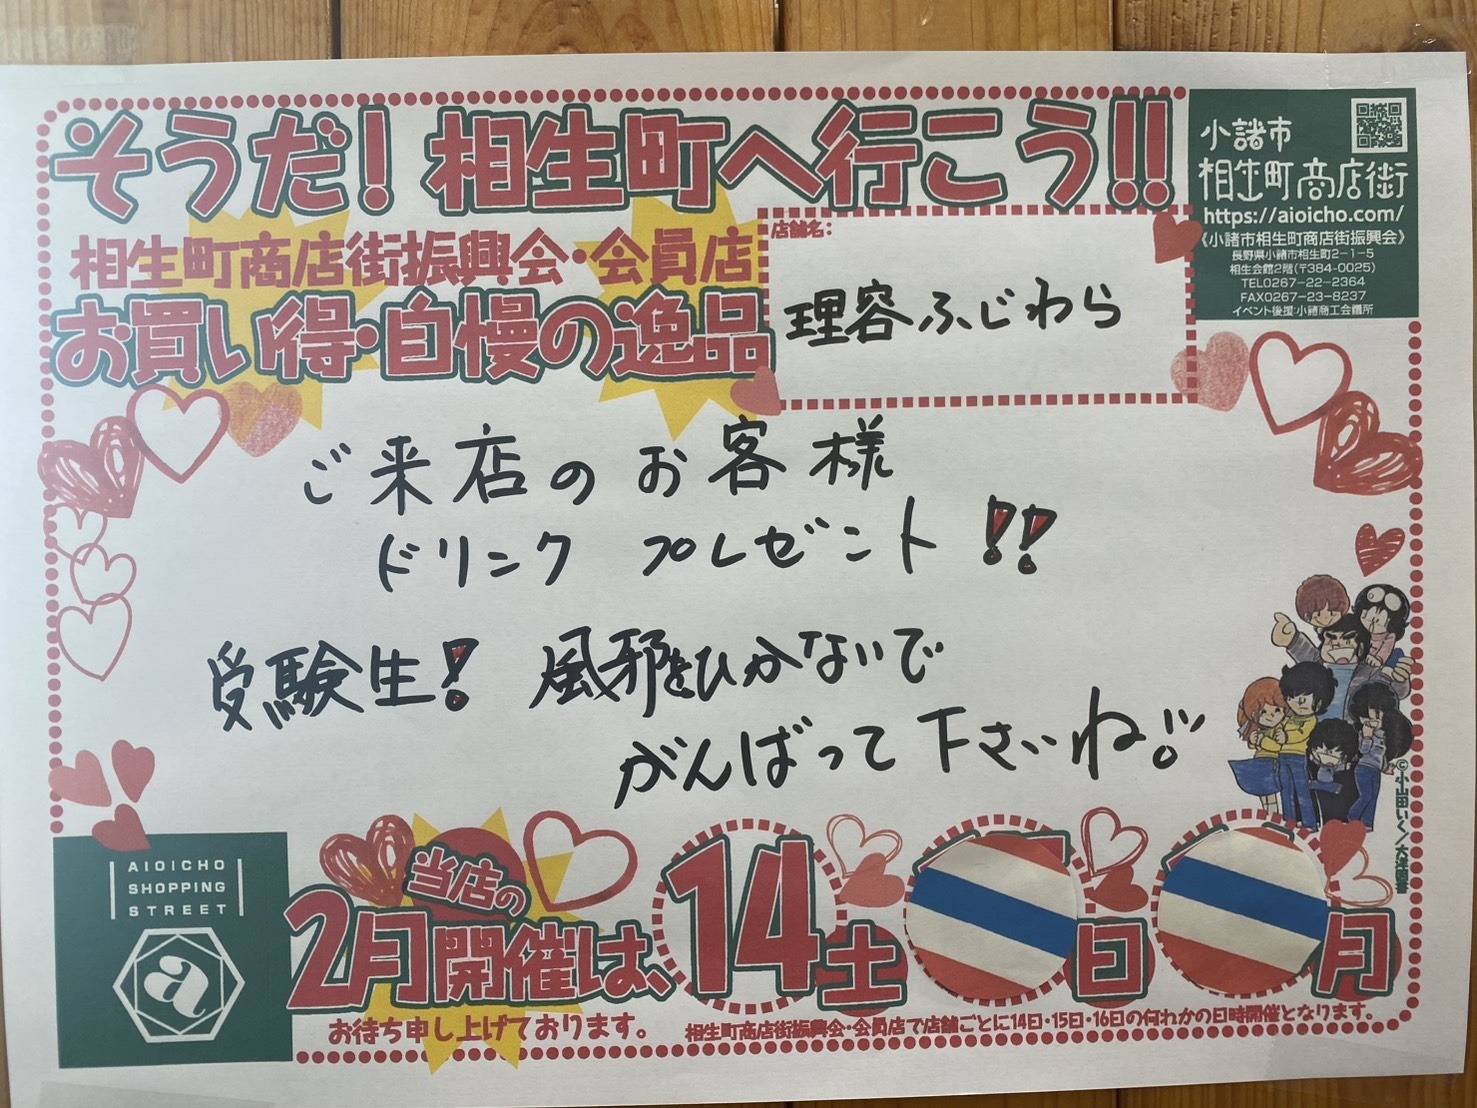 そうだ！相生町へ行こう!!
小諸市
相生町商店街
https://aioicho.com/
《小諸市相生町商店街振興会》
長野県小諸市相生町2-1-5
相生会館2階(〒384-0025)
TEL0267-22-2364
FAX0267-23-8237
イベント後援:小諸商工会議所
相生町商店街振興会・会員店
お買い得・自慢の逸品
店舗名:
理容ふじわら
ご来店のお客様
ドリンク プレゼント!!
受験生! 風邪をひかないで
がんばって下さいね!!
©小山田いく/大俣商事
AIOICHO
SHOPPING
STREET
a
当店の
2月開催は、14土 日 月
お待ち申し上げております。
相生町商店街振興会・会員店で店舗ごとに14日・15日・16日の何れかの日時開催となります。